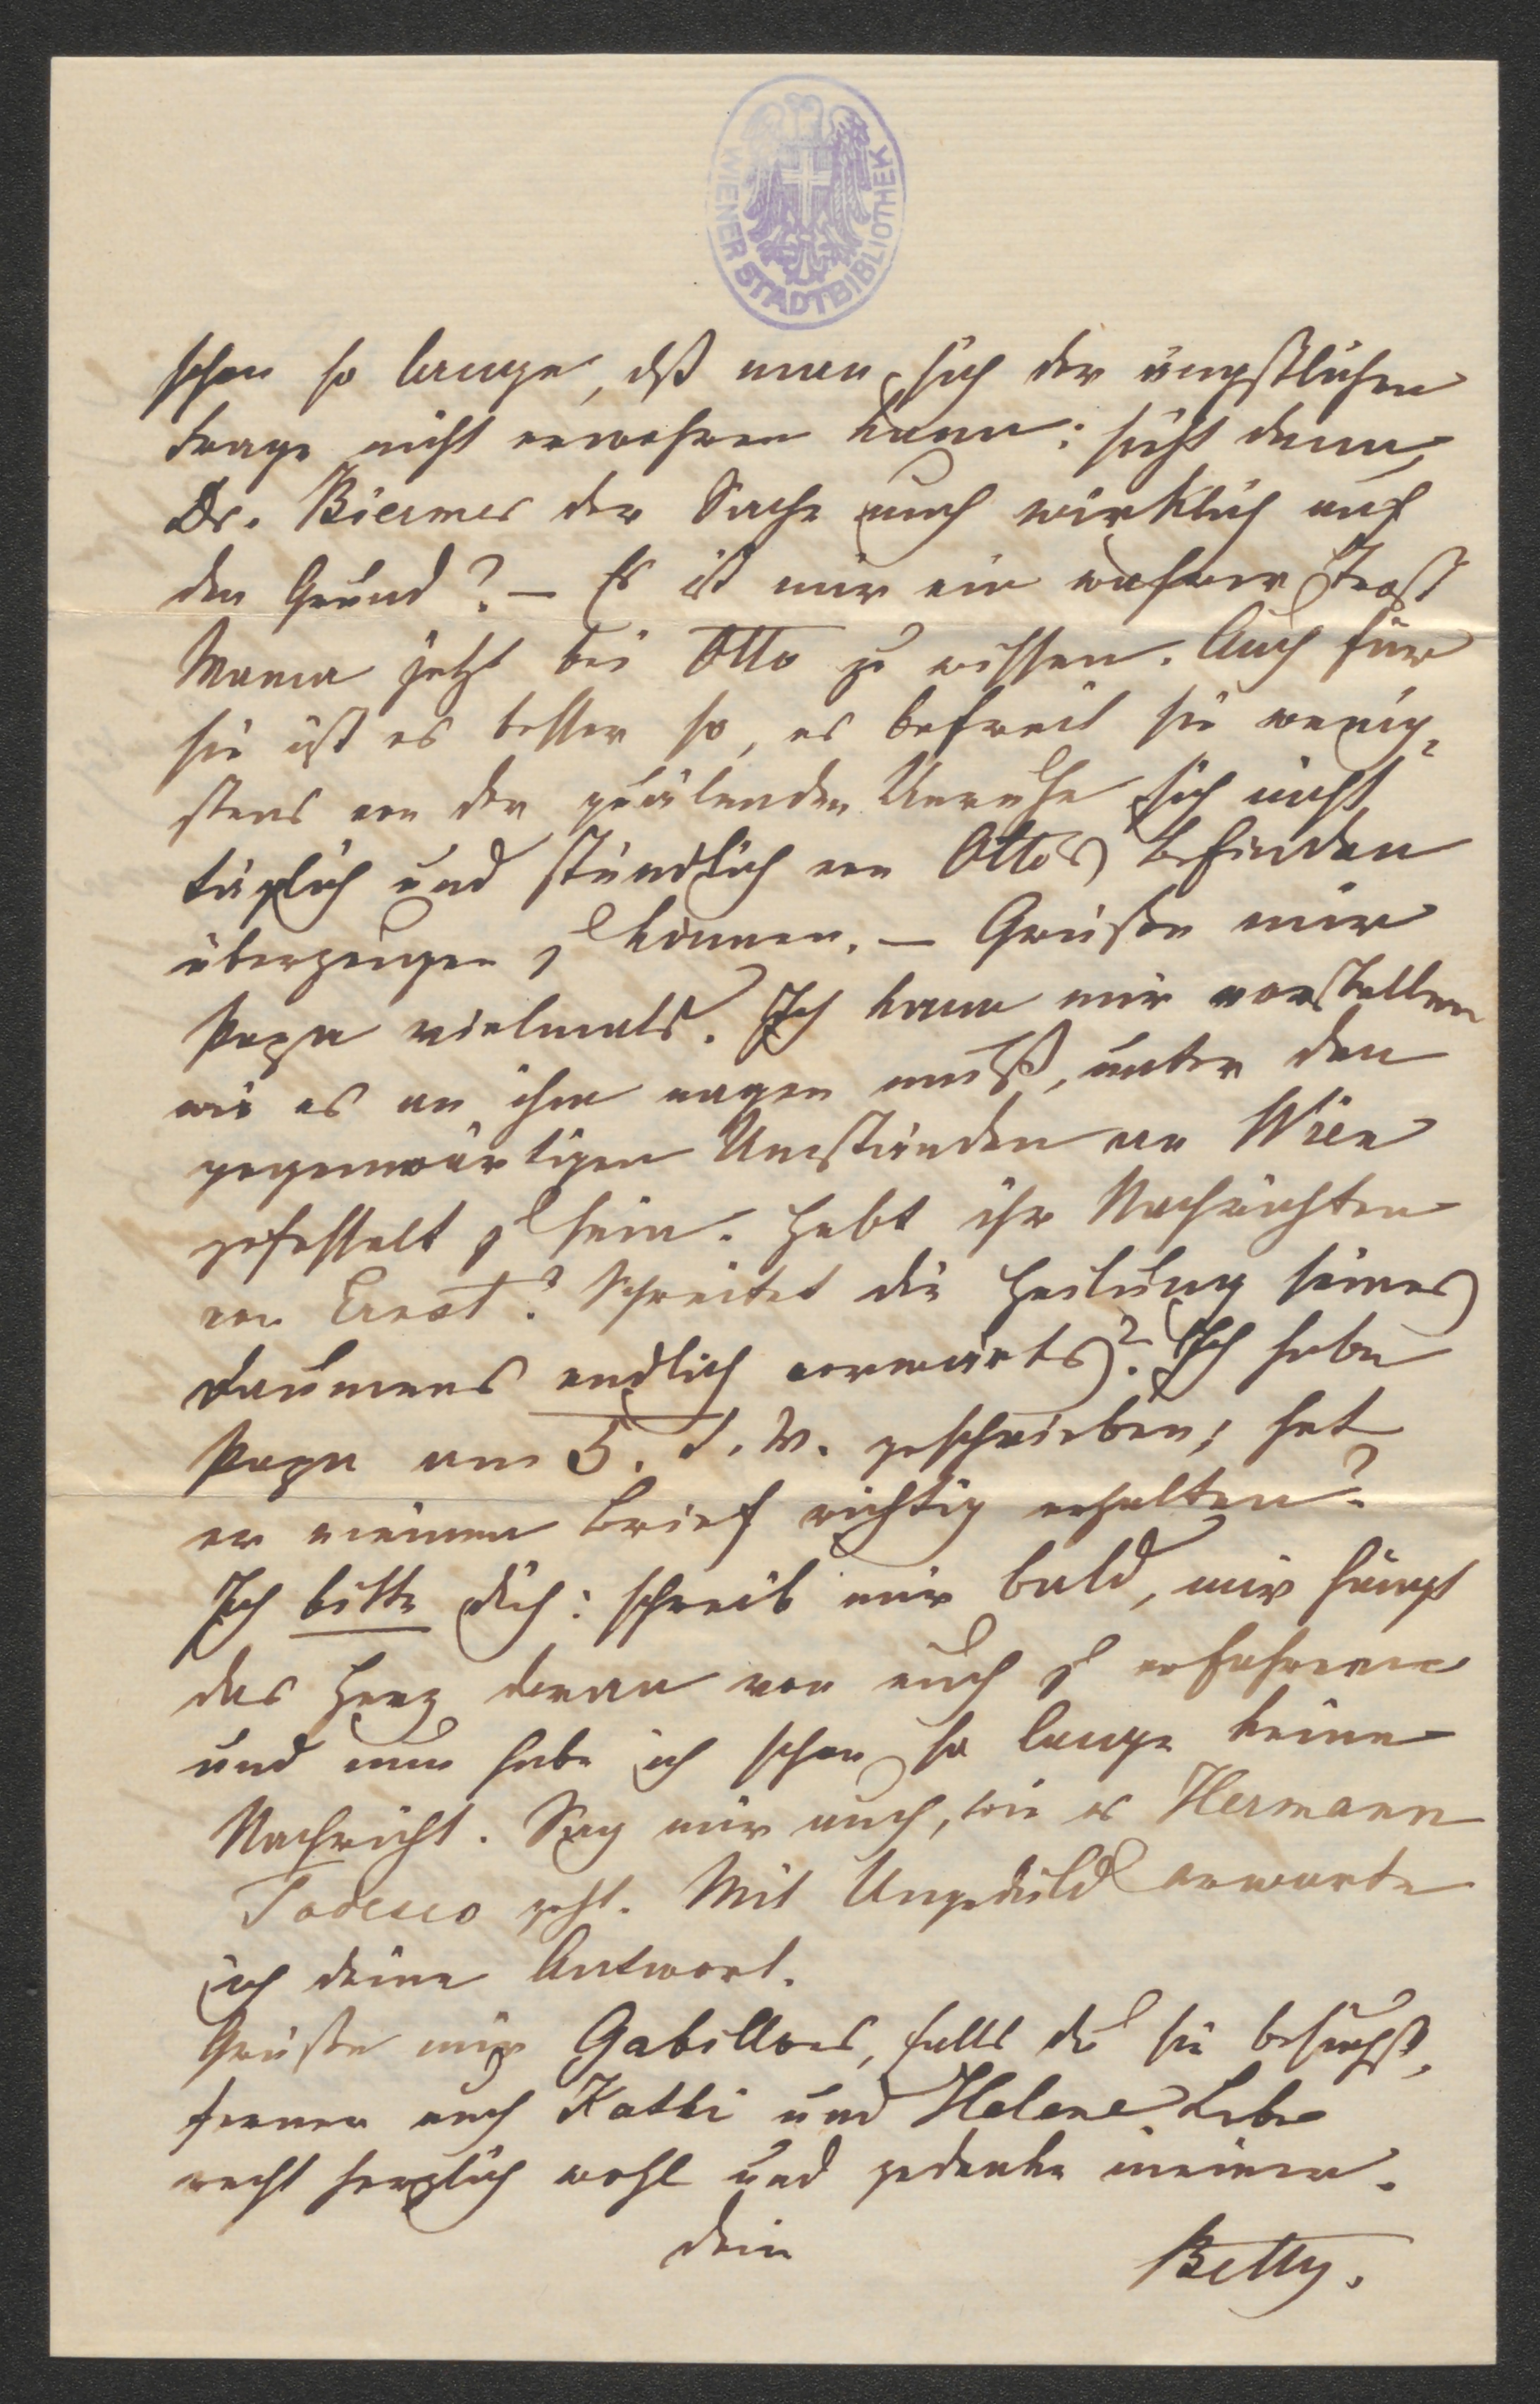 WIENER STADTBIBLIOTHEK
schon so lange, dß man sich der ängstlichen
Frage nicht erwehren kann: sieht denn
Dr. Biermer der Sache auch wirklich auf
den Grund? — Es ist mir ein wahrer Trost
Mama jetzt bei Otto zu wissen. Auch für
sie ist es besser so, es befreit sie wenig-
stens von der quälenden Unruhe sich nicht
täglich und stündlich von Otto's Befinden
überzeugen zu können. — Grüße mir
Papa vielmals. Ich kann mir vorstellen
wie es an ihm nagen muß, unter den
gegenwärtigen Umständen an Wien
gefesselt zu sein. Habt ihr Nachrichten
von Ernst? Schreitet die Heilung seines
Daumens endlich vorwärts? Ich habe
Papa am 5. d. M. geschrieben; hat
er meinen Brief richtig erhalten?
Ich bitte dich: schreib mir bald, mir hängt
das Herz daran von euch zu erfahren
und nun habe ich schon so lange keine
Nachricht. Sag mir auch, wie es Hermann
Todesco geht. Mit Ungeduld erwarte
ich deine Antwort.
Grüße mir Gabillons, falls du sie besuchst,
ferner auch Kathi und Helene. Lebe
recht herzlich wohl und gedenke meiner.
Dein
Betty.